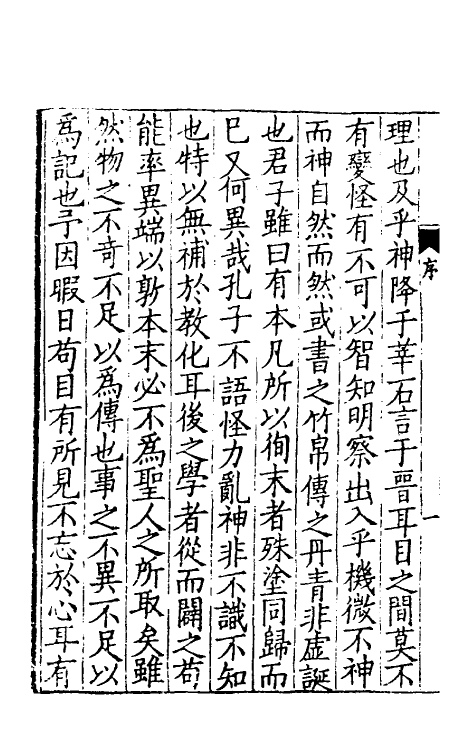 序
一
理也及乎神降于莘石言于晋耳目之間莫不
有變怪有不可以智知明察出入乎機微不神
而神自然而然或書之竹帛傳之丹青非虚誕
也君子雖曰有本凡所以徇末者殊塗同歸而
已又何異哉孔子不語怪力亂神非不識不知
也特以無補於教化耳後之學者從而闢之苟
能率異端以敦本末必不爲聖人之所取矣雖
然物之不奇不足以爲傳也事之不異不足以
爲記也予因暇日苟目有所見不忘於心耳有